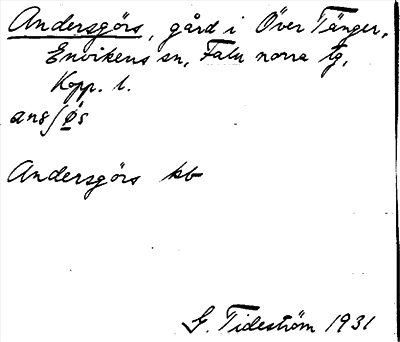 Andersgörs, gård i Över Tänger,
Envikens sn, Falu norra tg,
Kopp. l.
ansʃø̱s
Andersgörs kb
G. Tideström 1931